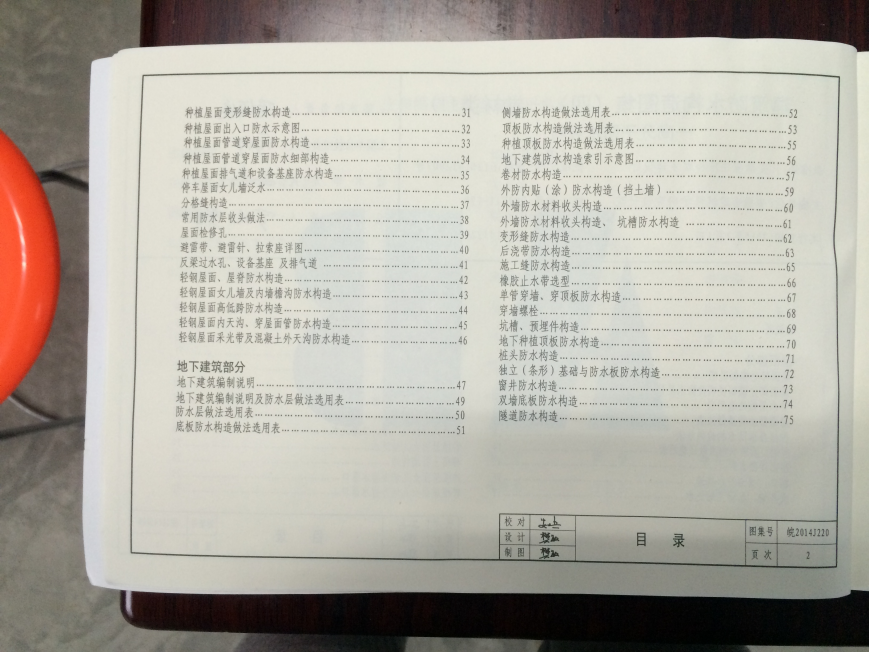 种植屋面变形缝防水构造……………………………………………31
种植屋面出入口防水示意图…………………………………………32
种植屋面管道穿屋面防水构造………………………………………33
种植屋面管道穿屋面防水细部构造…………………………………34
种植屋面排气道和设备基座防水构造………………………………35
停车屋面女儿墙泛水…………………………………………………36
分格缝构造……………………………………………………………37
常用防水层收头做法…………………………………………………38
屋面检修孔……………………………………………………………39
避雷带、避雷针、拉索座详图………………………………………40
反梁过水孔、设备基座 及排气道 …………………………………41
轻钢屋面、屋脊防水构造……………………………………………42
轻钢屋面女儿墙及内墙檐沟防水构造………………………………43
轻钢屋面高低跨防水构造……………………………………………44
轻钢屋面内天沟、穿屋面管防水构造………………………………45
轻钢屋面采光带及混凝土外天沟防水构造…………………………46
地下建筑部分
地下建筑编制说明……………………………………………………47
地下建筑编制说明及防水层做法选用表……………………………49
防水层做法选用表……………………………………………………50
底板防水构造做法选用表……………………………………………51
侧墙防水构造做法选用表……………………………………………52
顶板防水构造做法选用表……………………………………………53
种植顶板防水构造做法选用表………………………………………55
地下建筑防水构造索引示意图………………………………………56
卷材防水构造…………………………………………………………57
外防内贴（涂）防水构造（挡土墙）………………………………59
外墙防水材料收头构造………………………………………………60
外墙防水材料收头构造、 坑槽防水构造 …………………………61
变形缝防水构造………………………………………………………62
后浇带防水构造………………………………………………………63
施工缝防水构造………………………………………………………65
橡胶止水带选型………………………………………………………66
单管穿墙、穿顶板防水构造…………………………………………67
穿墙螺栓………………………………………………………………68
坑槽、预埋件构造……………………………………………………69
地下种植顶板防水构造………………………………………………70
桩头防水构造…………………………………………………………71
独立（条形）基础与防水板防水构造………………………………72
窗井防水构造…………………………………………………………73
双墙底板防水构造……………………………………………………74
隧道防水构造…………………………………………………………75
校 对
设 计
制 图
目 录
图集号 皖2014J220
页 次 2